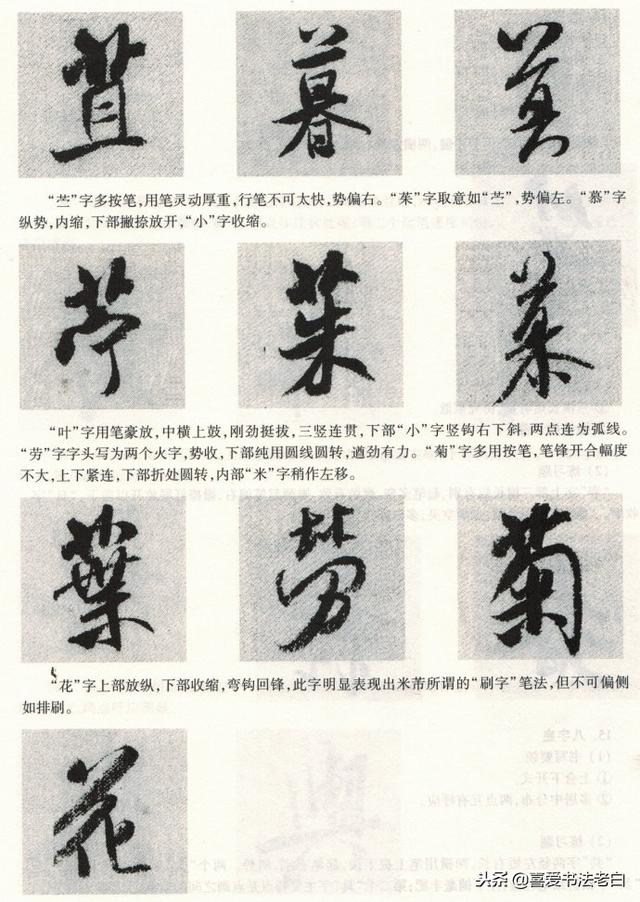 苴 暮
“苎”字多按笔,用笔灵动厚重,行笔不可太快,势偏右。“茱”字取意如“苎”,势偏左。“慕”字
纵势,内缩,下部撇捺放开,“小”字收缩。
苧 茱 慕
“叶”字用笔豪放,中横上鼓,刚劲挺拔,三竖连贯,下部“小”字竖钩右下斜,两点连为弧线。
“劳”字字头写为两个火字,势收,下部纯用圆线圆转,遒劲有力。“菊”字多用按笔,笔锋开合幅度
不大,上下紧连,下部折处圆转,内部“米”字稍作左移。
葉 勞 菊
“花”字上部放纵,下部收缩,弯钩回锋,此字明显表现出米芾所谓的“刷字”笔法,但不可偏侧
如排刷。
花
头条 @喜爱书法老白